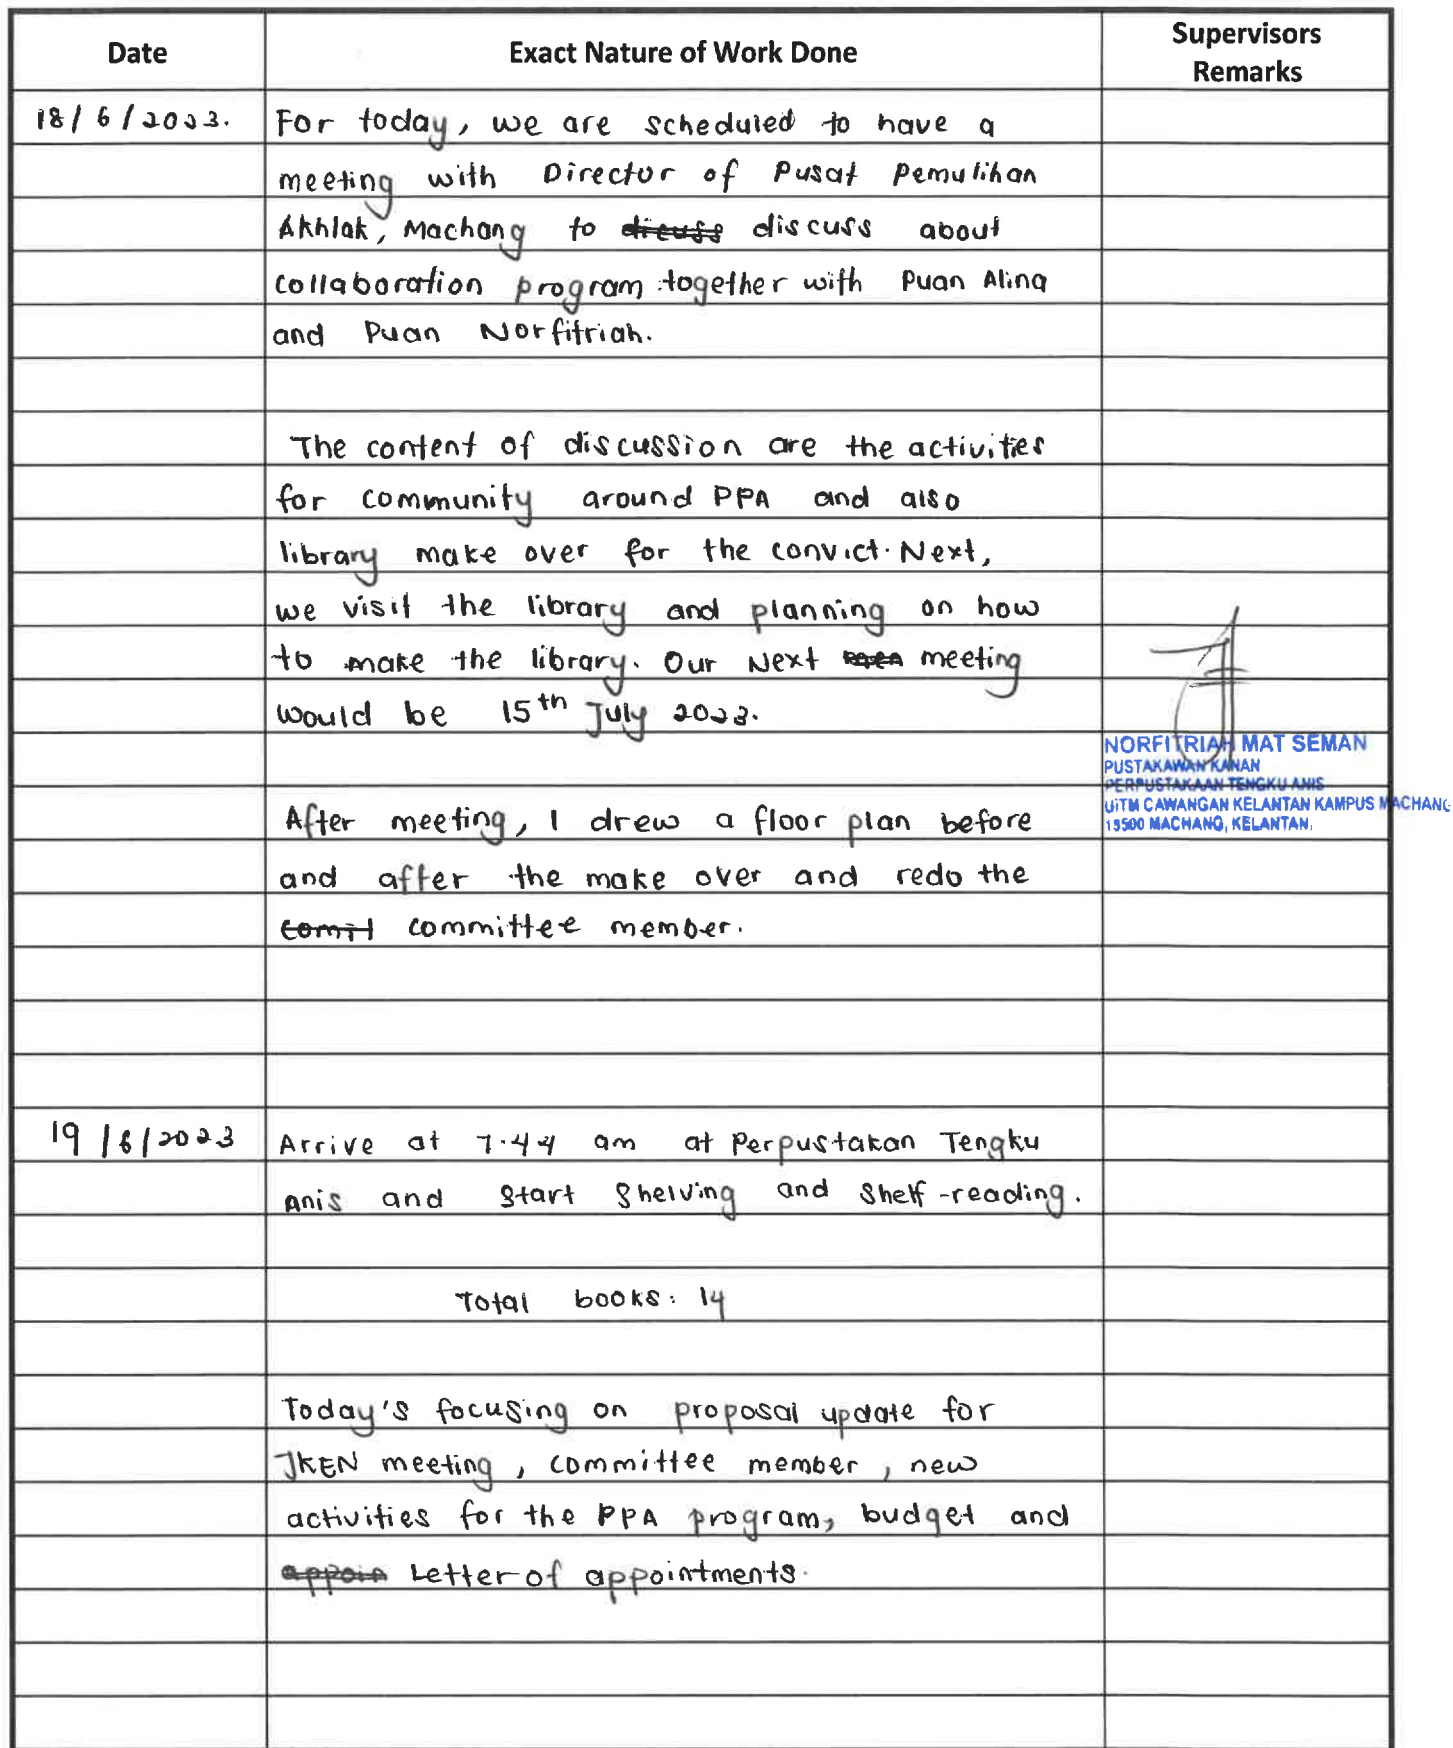 Date Exact Nature of Work Done Supervisors Remarks
18/6/2023. For today, we are scheduled to have a
meeting with Director of Pusat Pemulihan
Akhlak, Machang to dicuss discuss about
collaboration program together with Puan Alina
and Puan Norfitriah.
The content of discussion are the activities
for community around PPA and also
library make over for the convict. Next,
we visit the library and planning on how
to make the library. Our Next meeting
would be 15th July 2023.
NORFITRIAH MAT SEMAN
PUSTAKAWAN KANAN
PERPUSTAKAAN TENGKU ANIS
UiTM CAWANGAN KELANTAN KAMPUS MACHANG
18500 MACHANG, KELANTAN.
After meeting, I drew a floor plan before
and after the make over and redo the
comit committee member.
19/6/2023 Arrive at 7.44 am at Perpustakan Tengku
Anis and start shelving and shelf-reading.
Total books: 14
Today's focusing on proposal update for
JKEN meeting, committee member, new
activities for the PPA program, budget and
appoin Letter of appointments.